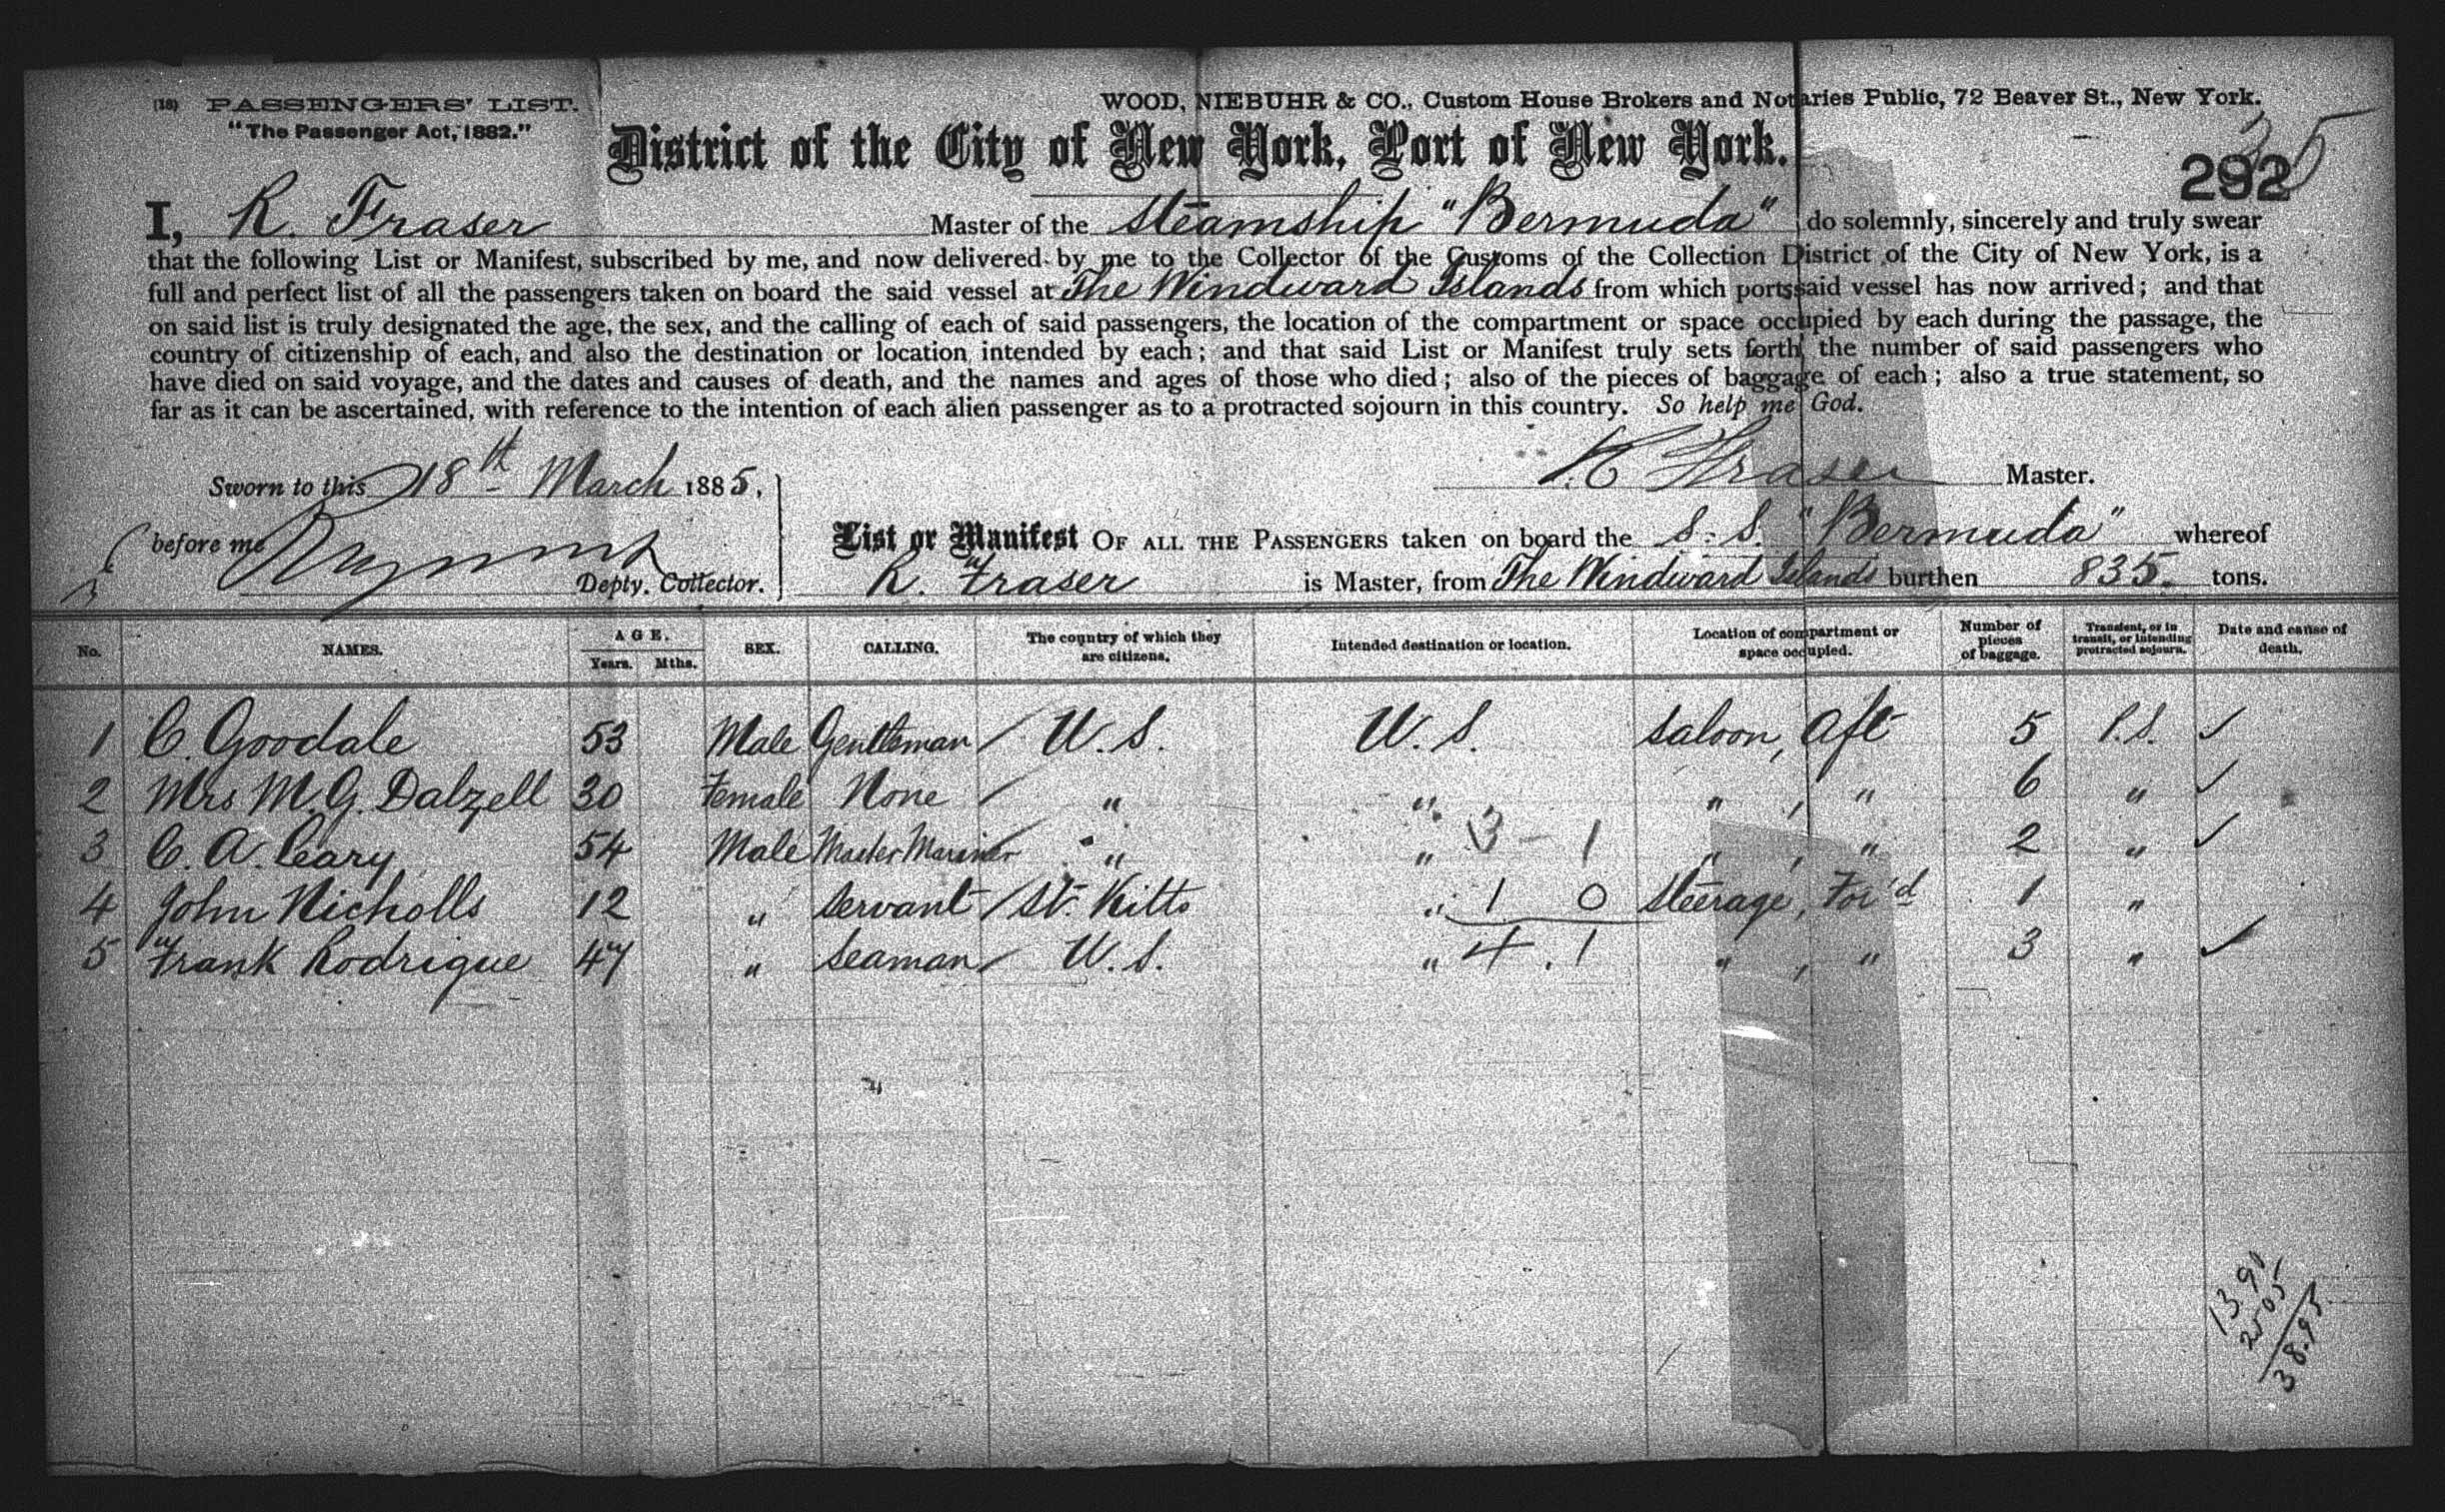 (18) PASSENGERS' LIST.
"The Passenger Act, 1882."
WOOD, NIEBUHR & CO., Custom House Brokers and Notaries Public, 72 Beaver St., New York.
District of the City of New York, Port of New York.
35
292
I, R. Fraser Master of the Steamship "Bermuda" do solemnly, sincerely and truly swear
that the following List or Manifest, subscribed by me, and now delivered by me to the Collector of the Customs of the Collection District of the City of New York, is a
full and perfect list of all the passengers taken on board the said vessel at The Windward Islands from which ports said vessel has now arrived; and that
on said list is truly designated the age, the sex, and the calling of each of said passengers, the location of the compartment or space occupied by each during the passage, the
country of citizenship of each, and also the destination or location intended by each; and that said List or Manifest truly sets forth the number of said passengers who
have died on said voyage, and the dates and causes of death, and the names and ages of those who died; also of the pieces of baggage of each; also a true statement, so
far as it can be ascertained, with reference to the intention of each alien passenger as to a protracted sojourn in this country. So help me God.
Sworn to this 18th March 1885,
R Fraser Master.
before me
Depty. Collector.
List or Manifest OF ALL THE PASSENGERS taken on board the S.S. "Bermuda" whereof
R. Fraser is Master, from The Windward Islands burthen 835. tons.
No. NAMES. AGE. Years. Mths. SEX. CALLING. The country of which they are citizens. Intended destination or location. Location of compartment or space occupied. Number of pieces of baggage. Transient, or in transit, or intending protracted sojourn. Date and cause of death.
1 C. Goodale 53 Male Gentleman / U.S. U.S. Saloon, Aft 5 P.S. ✓
2 Mrs M. G. Dalzell 30 Female None / " " " , " 6 " ✓
3 C. A. Leary 54 Male Master Mariner " " 3 - 1 " , " 2 " ✓
4 John Nicholls 12 " Servant / St. Kitts " 1 0 Steerage, For'd 1 "
5 Frank Rodrigue 47 " Seaman / U.S. " 4 . 1 " , " 3 " ✓
13.90
25 05
38.95